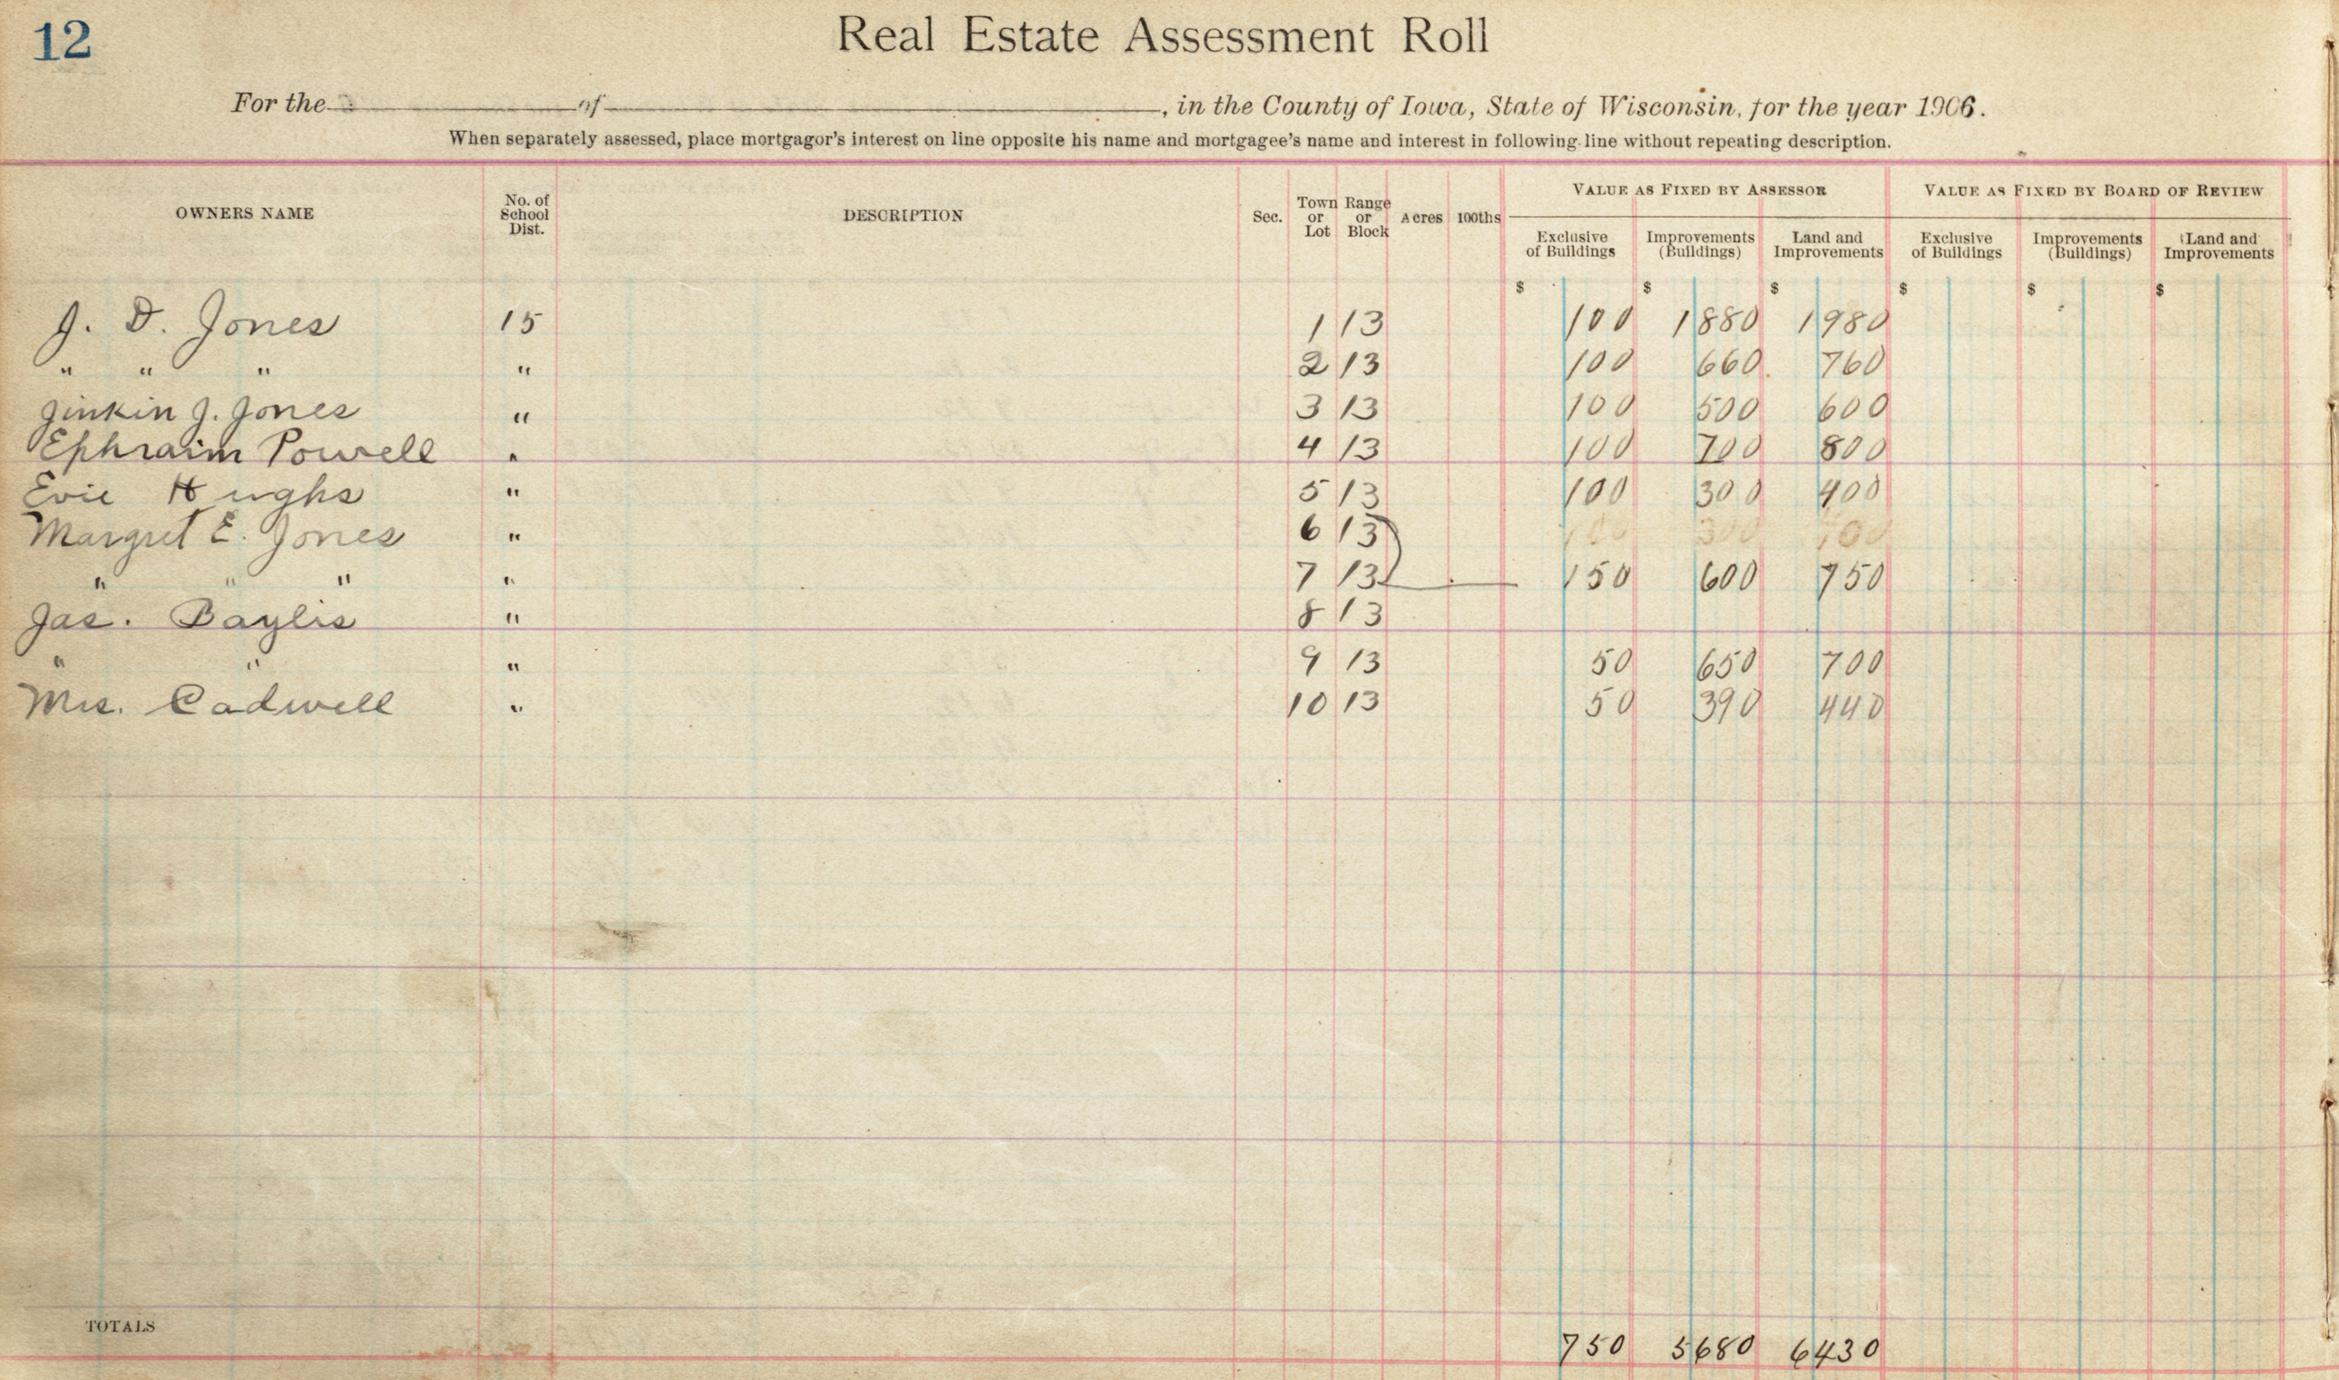 12
Real Estate Assessment Roll
For the of , in the County of Iowa, State of Wisconsin, for the year 1906.
When separately assessed, place mortgagor's interest on line opposite his name and mortgagee's name and interest in following line without repeating description.
OWNERS NAME No. of School Dist. DESCRIPTION Sec. Town or Lot Range or Block Acres 100ths VALUE AS FIXED BY ASSESSOR VALUE AS FIXED BY BOARD OF REVIEW
Exclusive of Buildings Improvements (Buildings) Land and Improvements Exclusive of Buildings Improvements (Buildings) Land and Improvements
$ $ $ $ $ $
J. D. Jones 15 1 13 100 1880 1980
" " " " 2 13 100 660 760
Jinkin J. Jones " 3 13 100 500 600
Ephraim Powell " 4 13 100 700 800
Evie Hughs " 5 13 100 300 400
Margret E. Jones " 6 13
" " " " 7 13 150 600 750
Jas. Baylis " 8 13
" " " 9 13 50 650 700
Mrs. Cadwell " 10 13 50 390 440
TOTALS 750 5680 6430